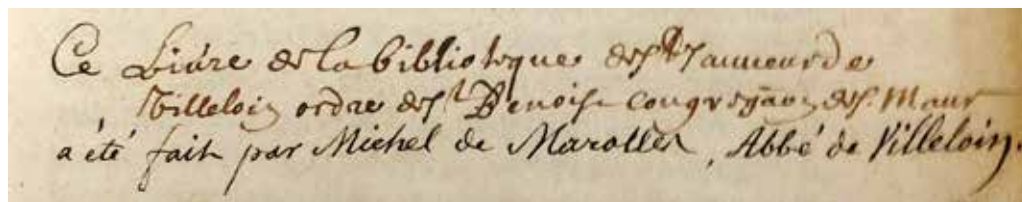 Ce Livre de la biblioteque de St Sauveur de
Villeloin ordre de St Benoist congregaon de St. Maur
a été fait par Michel de Marolles, Abbé de Villeloin.